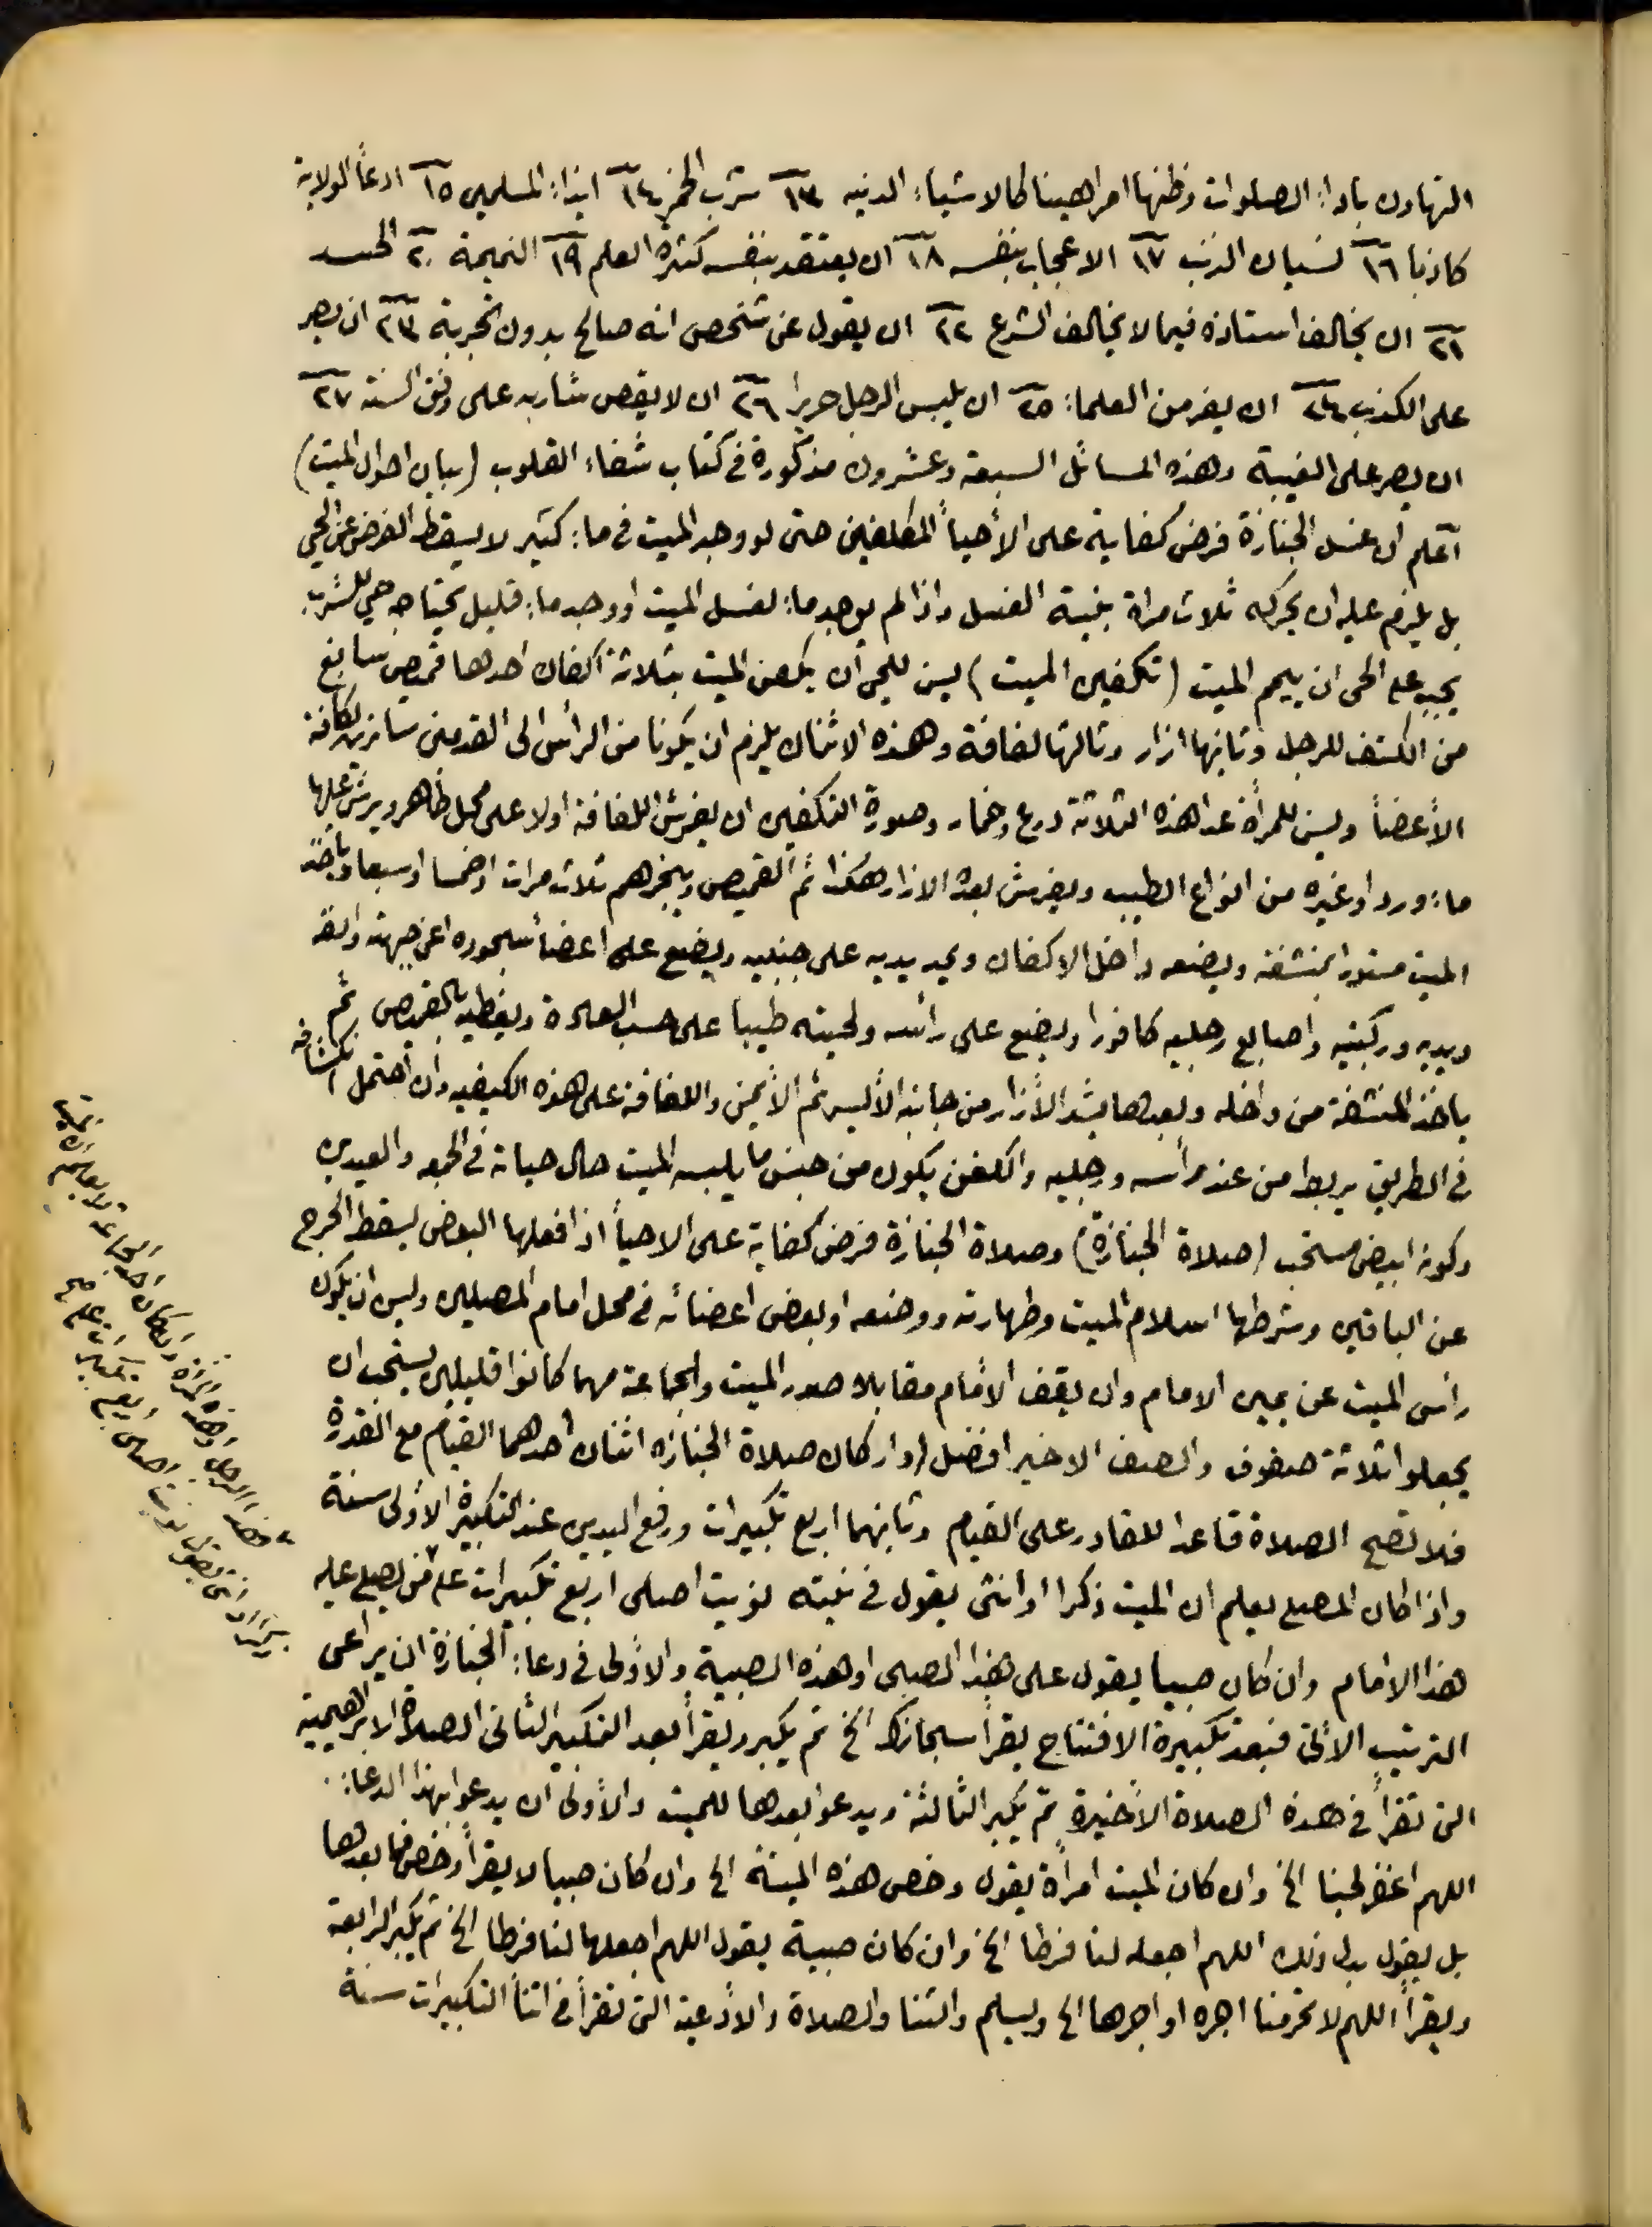 التهاون باداء الصلوات وظنها امرا هينا كالاشياء الدنيه ١٣ شرب الخمر ١٤ ايذاء المسلمين ١٥ ادعأ الولاية
كاذبا ١٦ نسيان الذنب ١٧ الاعجاب بنفسه ١٨ ان يعتقد بنفسه كثرة العلم ١٩ النميمة ٢٠ الحسد
٢١ ان يخالف استاذه فيما لا يخالف الشرع ٢٢ ان يقول عن شخص انه صالح بدون تجربة ٢٣ ان يصر
على الكذب ٢٤ ان يفر من العلماء ٢٥ ان يلبس الرجل حريرا ٢٦ ان لا يقص شاربه على وفق السنة ٢٧
ان يصر على الغيبة وهذه المسائل السبعة وعشرون مذكورة في كتاب شفاء القلوب (بيان احوال الميت)
أعلم ان غسل الجنازة فرض كفاية على الأحيأ المكلفين حتى لو وجد الميت في ماء كثير لا يسقط الفرض عن الحي
بل يلزم عليه ان يحركه ثلاث مراة بنية الغسل واذا لم يوجد ماء لغسل الميت او وجد ماء قليل يحتاجه حي للشرب
يجب على الحى ان ييمم الميت (تكفين الميت) يسن للحي أن يكفن الميت بثلاثة اكفان احدها قميص سابغ
من الكتف للرجل وثانيها ازار وثالثها لفافة وهذه الاثنان يلزم ان يكونا من الرأس الى القدمين ساترين لكافة
الأعضأ ويسن للمرأة عدا هذه الثلاثة درع وخمار وصورة التكفين ان يفرش اللفافة اولا على محل طاهر ويرش عليها
ماء ورد او غيره من انواع الطيب ويفرش بعده الازار هكذا ثم القميص ويبخرهم ثلاث مرات او خمسا او سبعا ويأخذ
الميت مستورا بمنشفة ويضعه داخل الاكفان ويمد يديه على جنبيه ويضع على اعضأ سجوده اعني جبهته وانفه
ويديه وركبتيه واصابع رجليه كافورا ويضع على رائسه ولحيته طيبا على حسب العادة ويغطيه بالقميص ثم
ياخذ المنشفة من داخله وبعدها يشد الأزار من جانبه الأيسر ثم الأيمن واللفافة على هذه الكيفيه وان احتمل انكشافه
في الطريق يربط من عند رأسه ورجليه والكفن يكون من جنس ما يلبسه الميت حال حياته في الجمعه والعيدين
وكونه ابيض مستحب (صلاة الجنازة) وصلاة الجنازة فرض كفاية على الاحيأ اذا فعلها البعض يسقط الحرج
عن الباقين وشرطها اسلام الميت وطهارته ووضعه او بعض اعضائه في محل امام المصلين ويسن ان يكون
رائس الميت عن يمين الامام وان يقف الأمام مقابلا صدر الميت والجماعة مهما كانوا قليلين يستحب ان
يجعلوا ثلاثة صفوف والصف الاخير افضل (واركان صلاة الجنازه اثنان أحدهما القيام مع القدرة
فلا تصح الصلاة قاعدا للقادر على القيام وثانيهما اربع تكبيرات ورفع اليدين عند التكبيرة الأولى سنة
واذا كان المصلي يعلم ان الميت ذكرا او انثى يقول في نيته نويت اصلى اربع تكبيرات على من يصلي عليه
هذا الامام وان كان صبيا يقول على هذا الصبى او هذه الصبية والأولى في دعاء الجنازة ان يراعى
الترتيب الأتى فبعد تكبيرة الافتتاح يقرأ سبحانك الخ ثم يكبر ويقرأ بعد التكبير الثانى الصلاة الابراهيمية
التى تقرأ في هذه الصلاة الأخيرة ثم يكبر الثالثة ويدعو بعدها للميت والأولى ان يدعوا بهذا الدعاء
اللهم اغفر لحينا الخ وان كان الميت امرأة يقول وخص هذه الميتة الخ وان كان صبيا لا يقرأ وخص فما بعدها
بل يقول بدل ذلك اللهم اجعله لنا فرطا الخ وان كان صبية يقول اللهم اجعلها لنا فرطا الخ ثم يكبر الرابعة
ويقرأ اللهم لا تحرمنا اجره او اجرها الخ ويسلم والثنا والصلاة والأدعية التى تقرأ في اثنأ التكبيرات سنة